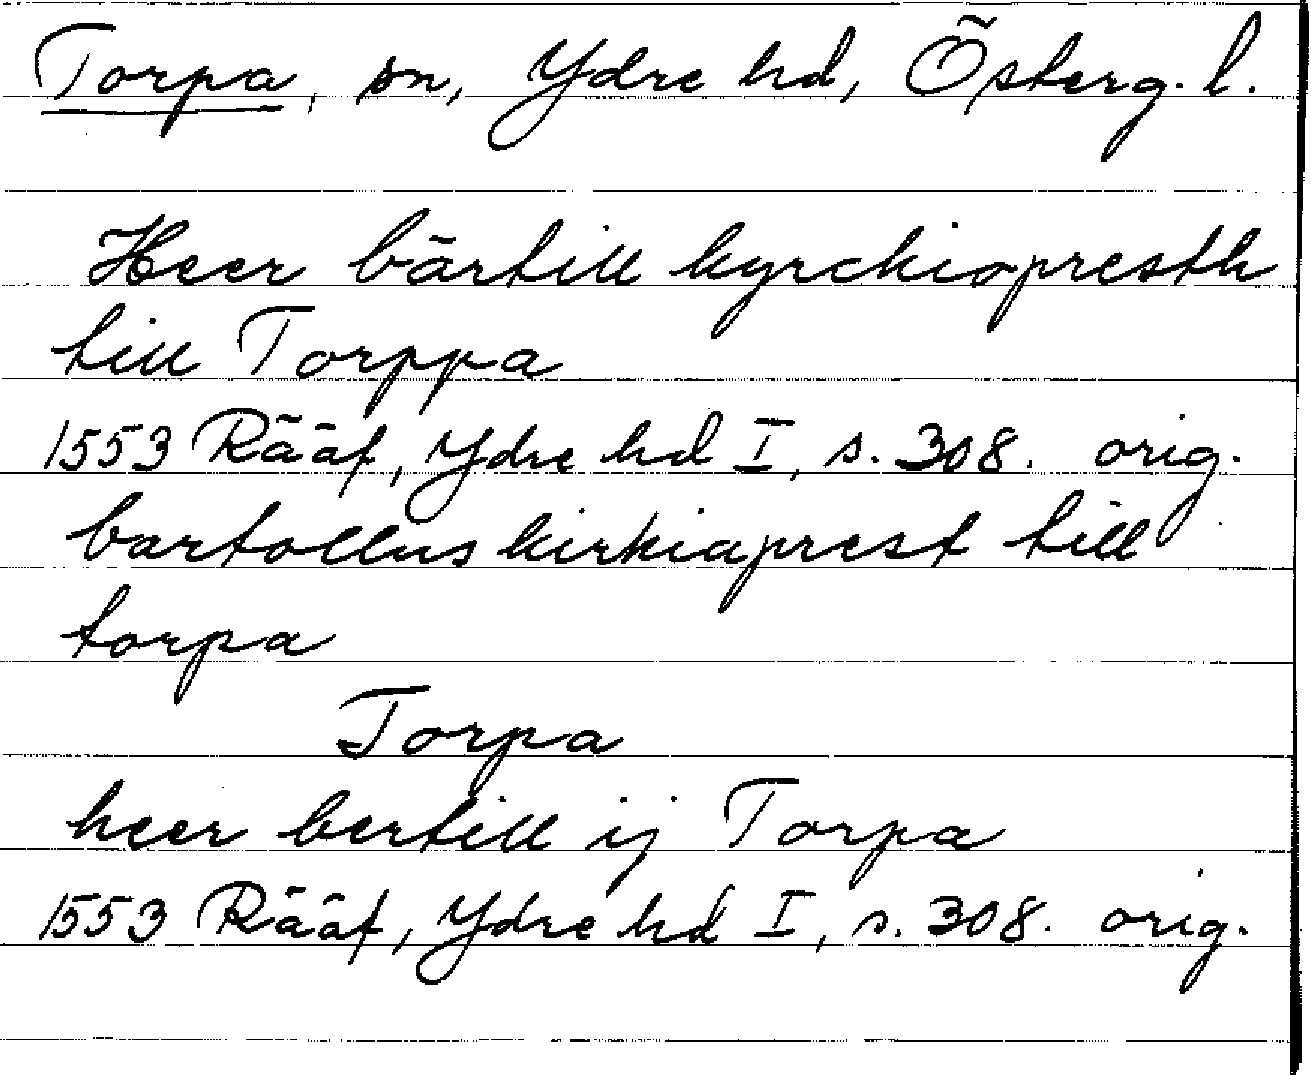 Torpa, sn, Ydre hd, Österg. l.
Heer bärtill kyrckiopresth
till Torppa
1553 Rääf, Ydre hd I, s. 308. orig.
bartollus kirkiaprest till
torpa
Torpa
heer bertill ij Torpa
1553 Rääf, Ydre hd I, s. 308. orig.